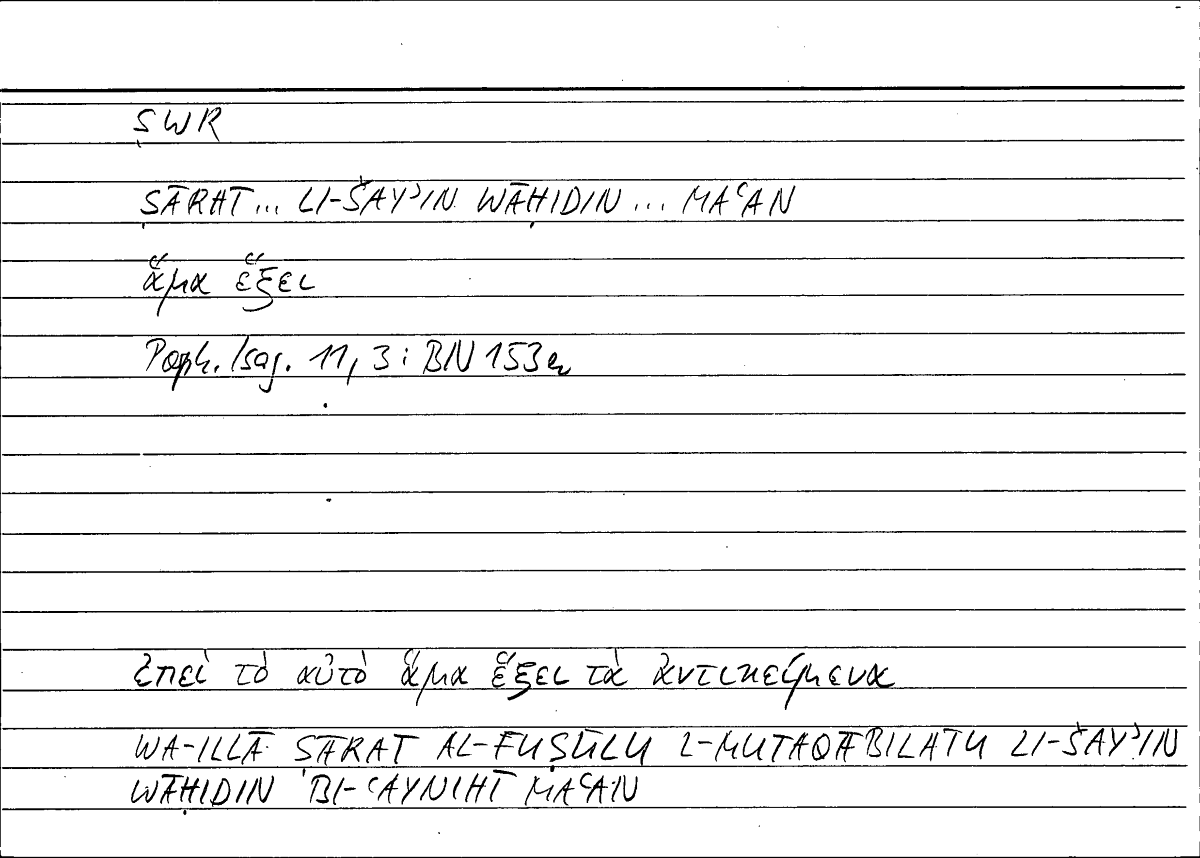 ṢWR
ṢĀRAT... LI-ŠAYʾIN WĀḤIDIN ... MAʿAN
ἅμα ἕξει
Porph. Isag. 11, 3 : BN 153a
ἐπεὶ τὸ αὐτὸ ἅμα ἕξει τὰ ἀντικείμενα
WA-ILLĀ SĀRAT AL-FUṢŪLU L-MUTAQĀBILATU LI-ŠAYʾIN
WĀḤIDIN BI-ʿAYNIHĪ MAʿAN